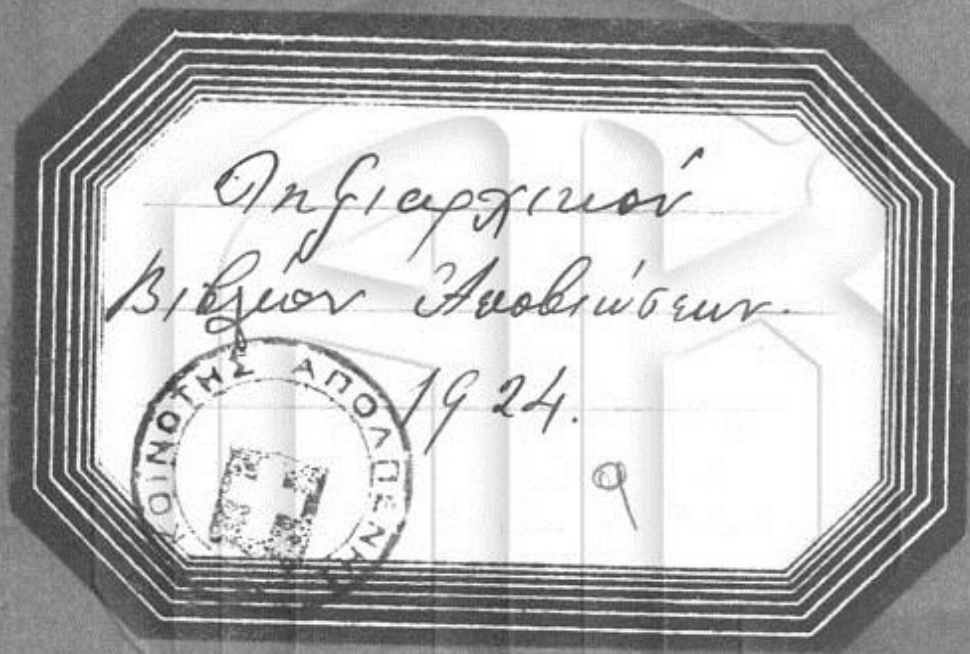 Ληξιαρχικόν
Βιβλίον Ἀποβιώσεων.
1924.
ΚΟΙΝΟΤΗΣ ΑΠΟΛΠΕΝΗΣ